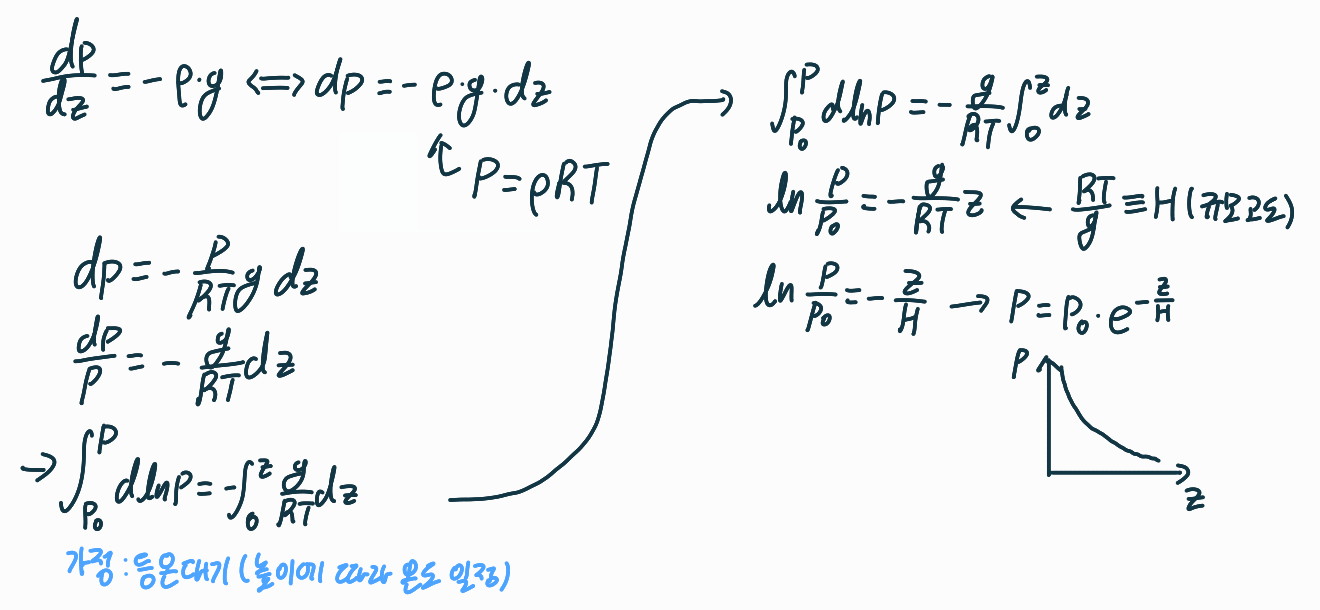 dp/dz = - ρ·g ⟺ dp = - ρ·g·dz
↖ P = ρRT
dp = - P/RT g dz
dP/P = - g/RT dz
→ ∫_P₀^P dlnP = - ∫_0^z g/RT dz
가정 : 등온대기 (높이에 따라 온도 일정)
→ ∫_P₀^P dlnP = - g/RT ∫_0^z dz
ln P/P₀ = - g/RT z ← RT/g ≡ H (규모고도)
ln P/P₀ = - z/H → P = P₀·e^(-z/H)
P
z